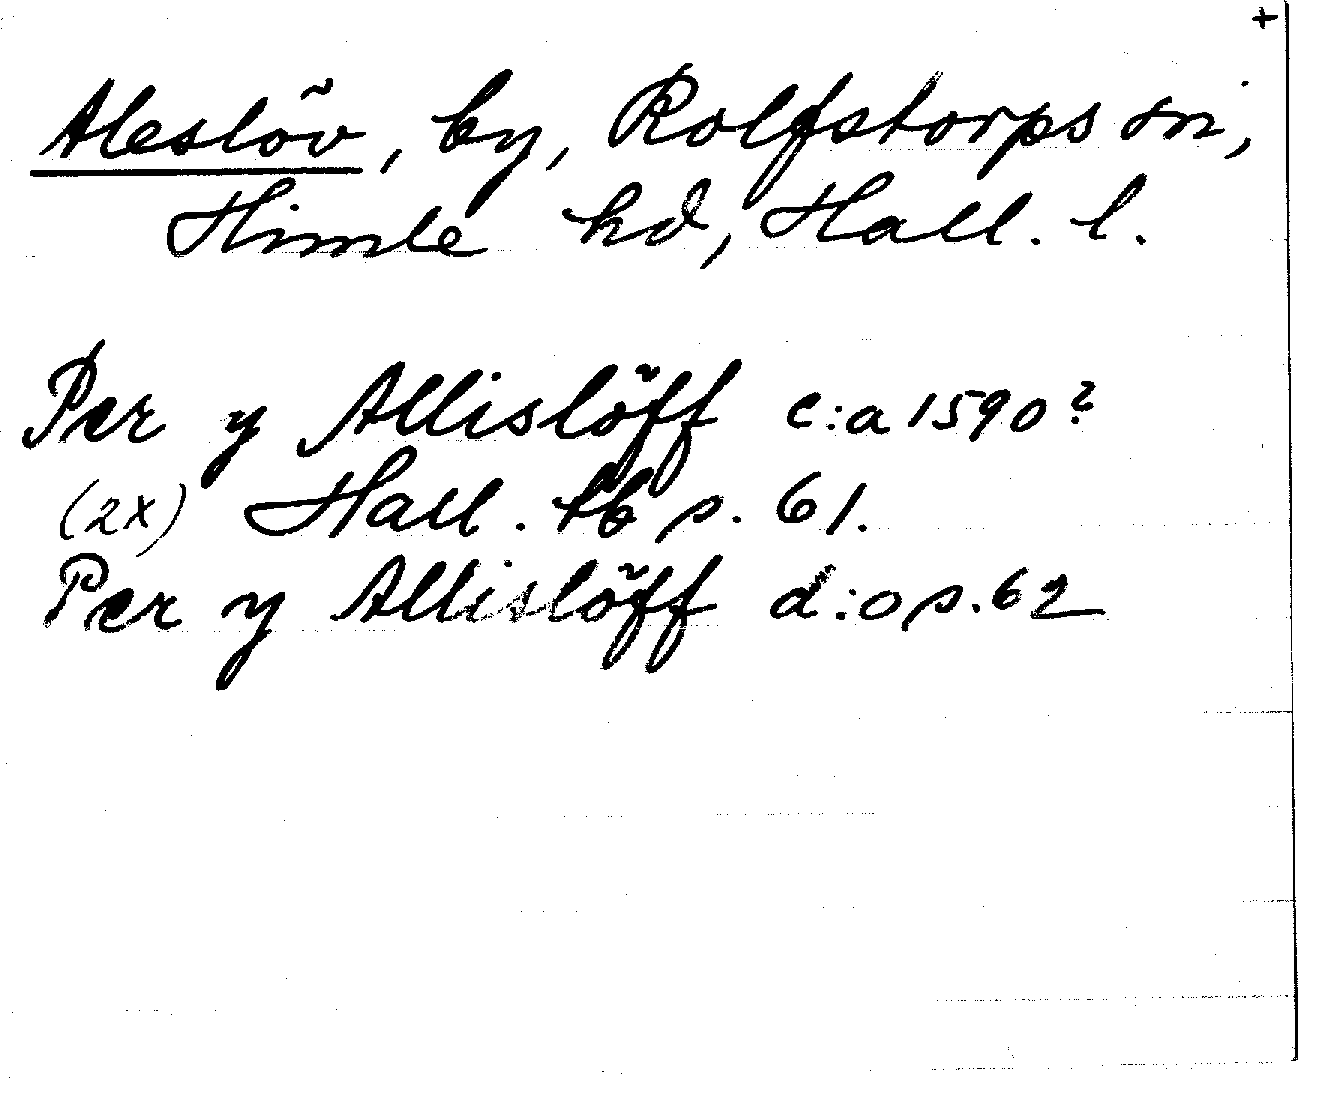 +
Aleslöv, by, Rolfstorps sn,
Himle hd, Hall. l.
Per y Allislöff c:a 1590?
(2x) Hall. tb s. 61.
Per y Allislöff d:o s. 62